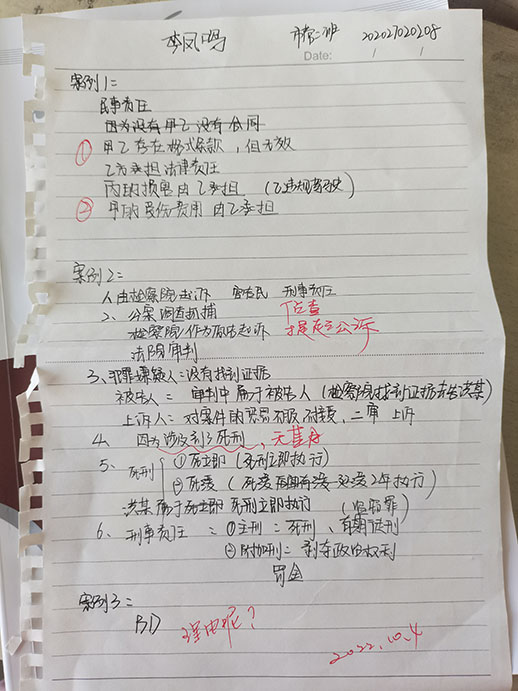 李凤鸣 202027020208
Date: / /
案例1:
民事责任
因为没有甲乙没有合同
① 甲乙存在格式条款,但无效
乙方承担法律责任
丙的损害由乙承担 (乙违规驾驶)
② 丙的医疗费用由乙承担
案例2:
人由检察院起诉 刑事责任
2、公案调查抓捕 侦查
检察院作为原告起诉 提起公诉
法院审判
3、犯罪嫌疑人:没有找到证据
被告人: 审判中属于被告人 (检察院找到证据去告洪某)
上诉人:对案件的结局不服不接受,二审上诉
4、因为涉及到了死刑,
5、死刑 ①死立即(死刑立即执行)
②死缓(死缓 缓2年执行)
洪某属于死立即 死刑立即执行
6、刑事责任:①主刑:死刑、有期徒刑
②附加刑:剥夺政治权利
罚金
案例3:
BD 理由呢?
2022.10.4